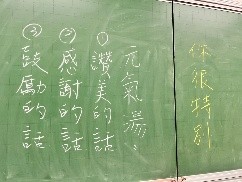 你很特別
元氣湯:
①讚美的話
②感謝的話
③鼓勵的話